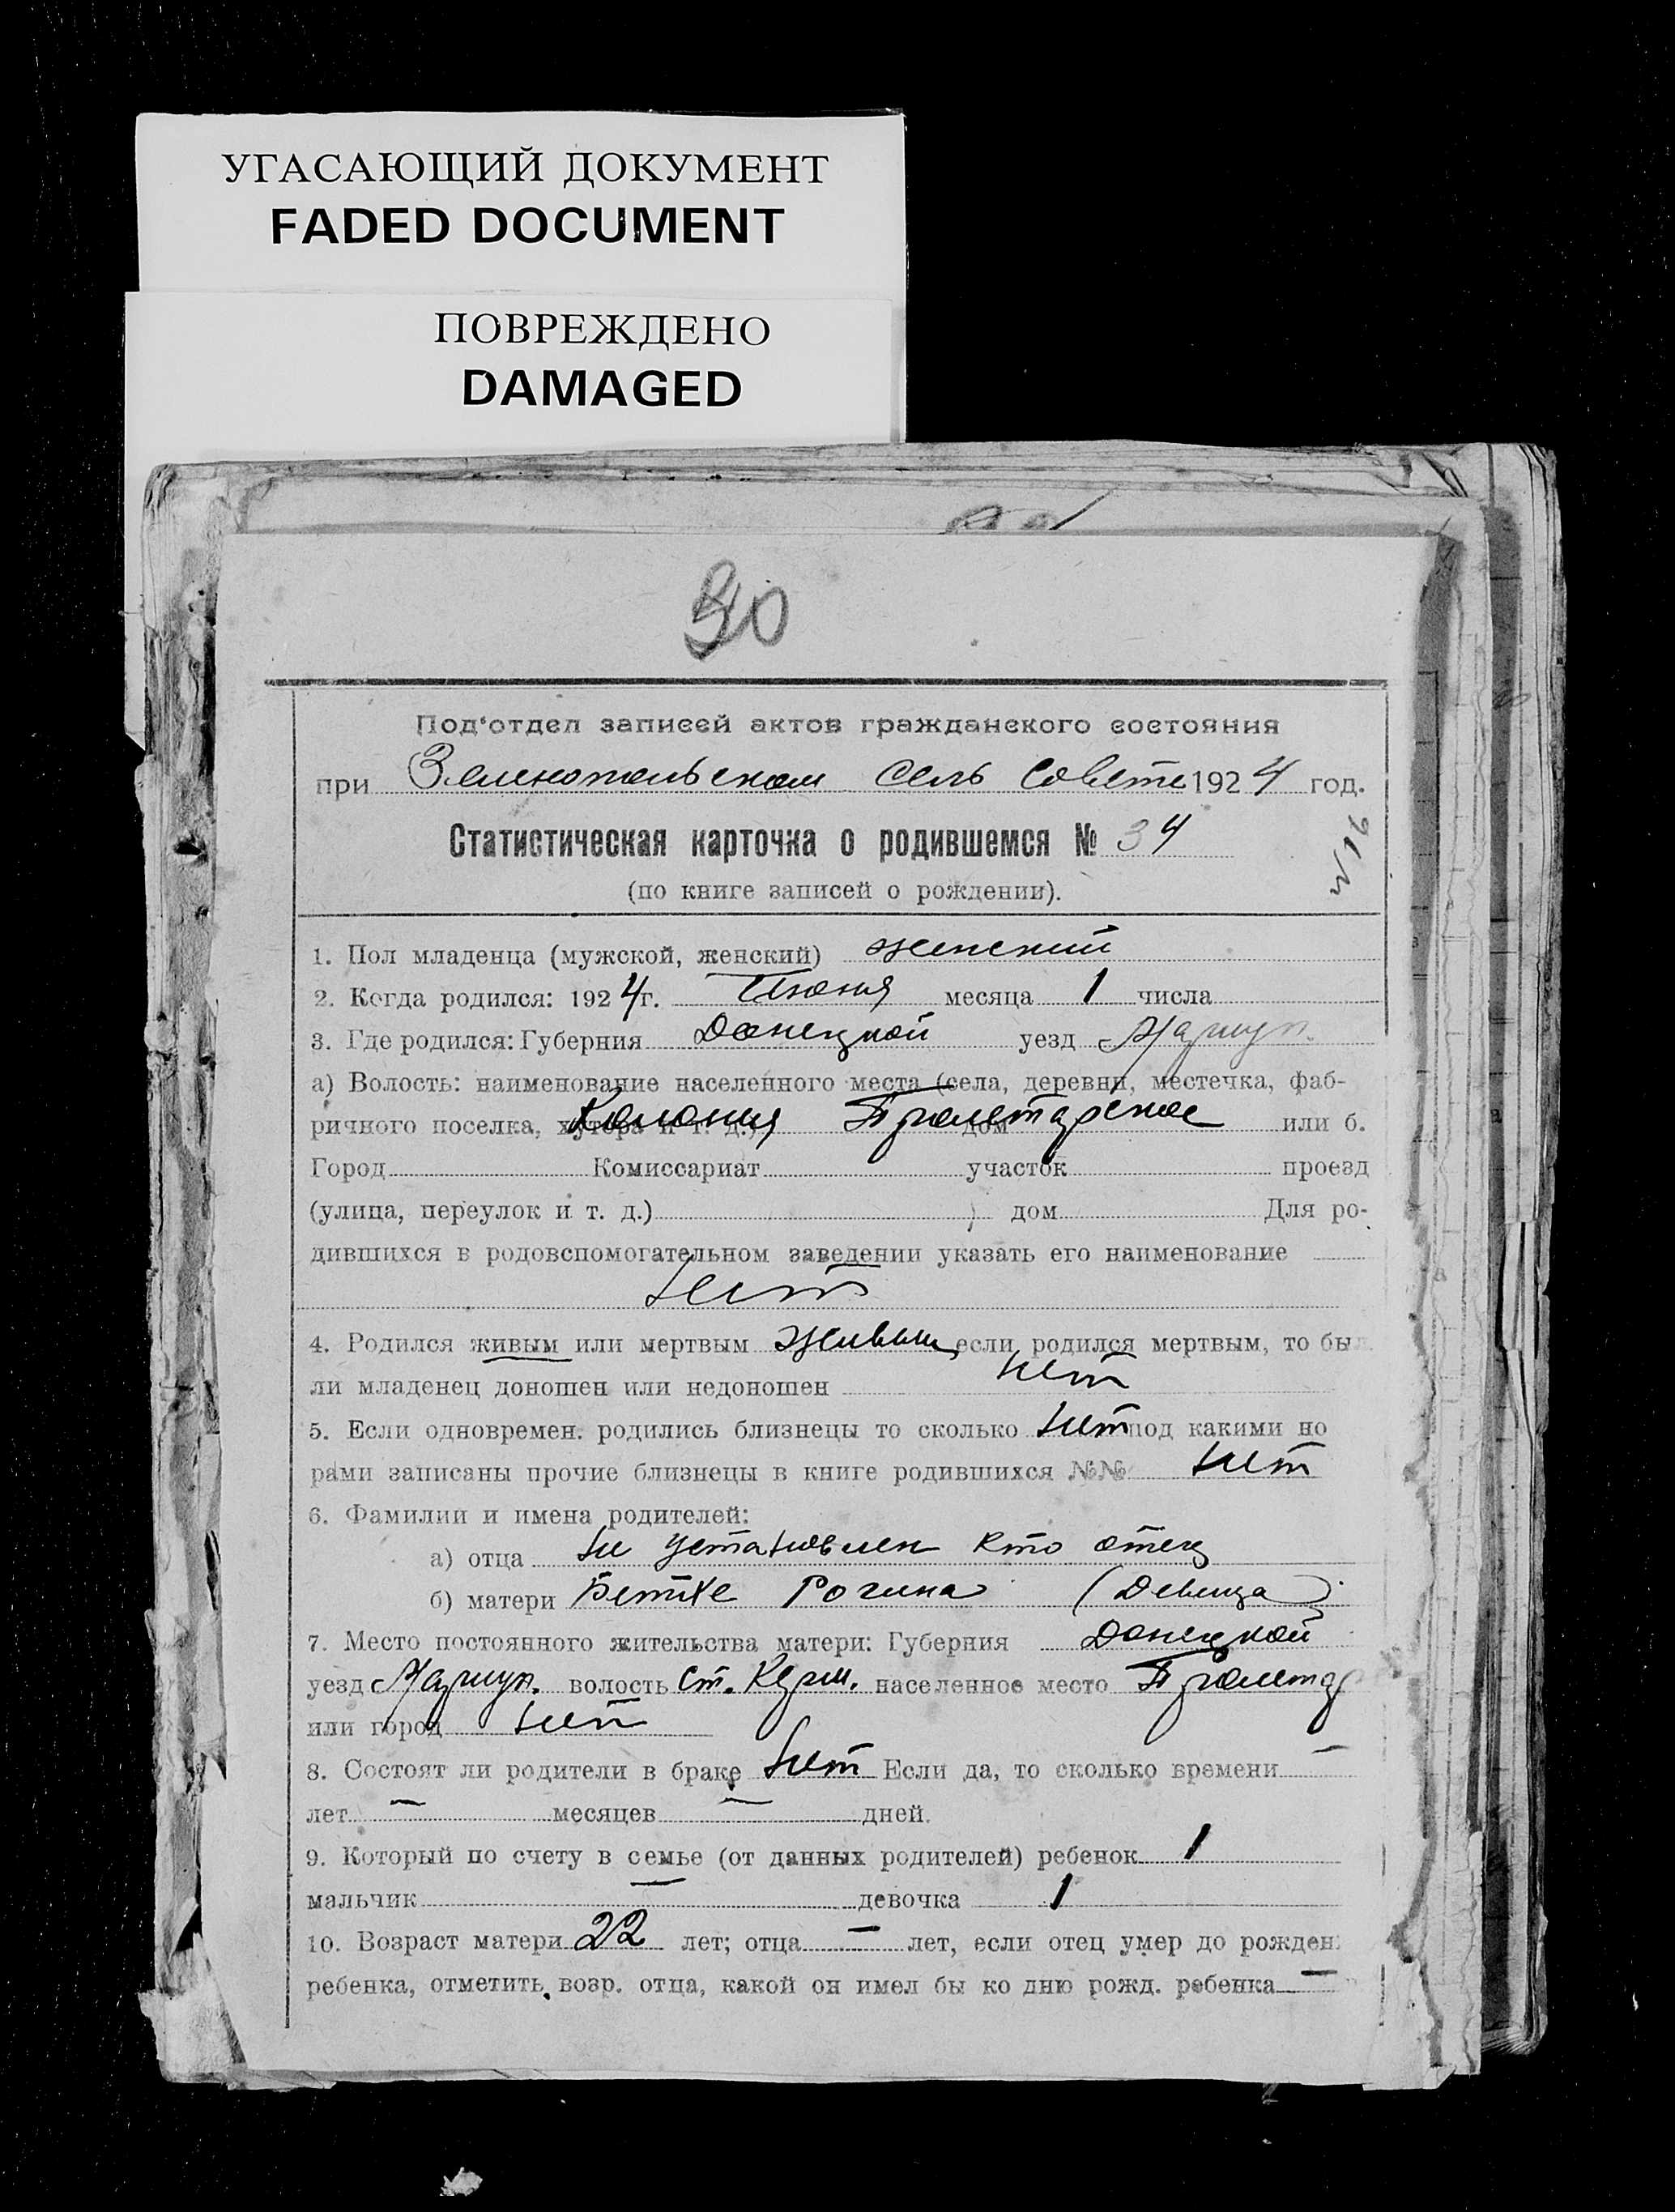 УГАСАЮЩИЙ ДОКУМЕНТ
FADED DOCUMENT
ПОВРЕЖДЕНО
DAMAGED
Под‘отдел записей актов гражданского состояния
при Зеленопольском Сель Совете 1924 год.
Статистическая карточка о родившемся № 34
(по книге записей о рождении).
1. Пол младенца (мужской, женский) женский
2. Когда родился: 1924г. Июня месяца 1 числа
3. Где родился: Губерния Донецкой уезд Мариуп.
а) Волость: наименование населенного места (села, деревни, местечка, фаб-
ричного поселка, хутора и т. д.) Колония Пролетарское дом или б.
Город Комиссариат участок проезд
(улица, переулок и т. д.) дом Для ро-
дившихся в родовспомогательном заведении указать его наименование
Нет
4. Родился живым или мертвым живым, если родился мертвым, то бы
ли младенец доношен или недоношен нет
5. Если одновремен. родились близнецы то сколько нет под какими но
рами записаны прочие близнецы в книге родившихся №№ нет
6. Фамилии и имена родителей:
а) отца не установлен кто отец
б) матери Бетхе Рогина (Девица)
7. Место постоянного жительства матери: Губерния Донецкой
уезд Мариуп. волость Ст. Керм. населенное место Пролетар
или город нет
8. Состоят ли родители в браке нет Если да, то сколько времени —
лет — месяцев — дней.
9. Который по счету в семье (от данных родителей) ребенок 1
мальчик — девочка 1
10. Возраст матери 22 лет; отца — лет, если отец умер до рожден
ребенка, отметить возр. отца, какой он имел бы ко дню рожд. ребенка —